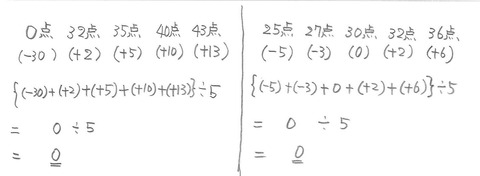 0点、 32点、 35点、 40点、 43点、
(-30) (+2) (+5) (+10) (+13)
{(-30)+(+2)+(+5)+(+10)+(+13)}÷5
= 0 ÷5
= 0
25点、 27点、 30点、 32点、 36点、
(-5) (-3) (0) (+2) (+6)
{(-5)+(-3)+0+(+2)+(+6)}÷5
= 0 ÷5
= 0